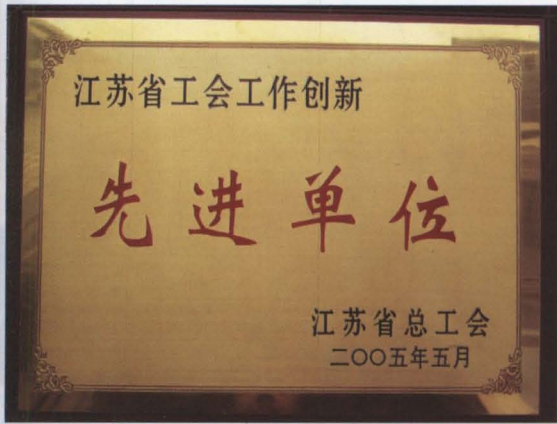 江苏省工会工作创新
先进单位
江苏省总工会
二〇〇五年五月